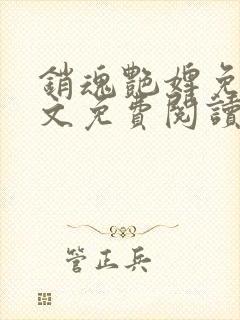 銷魂艷婢免
文免費閱讀
管正兵